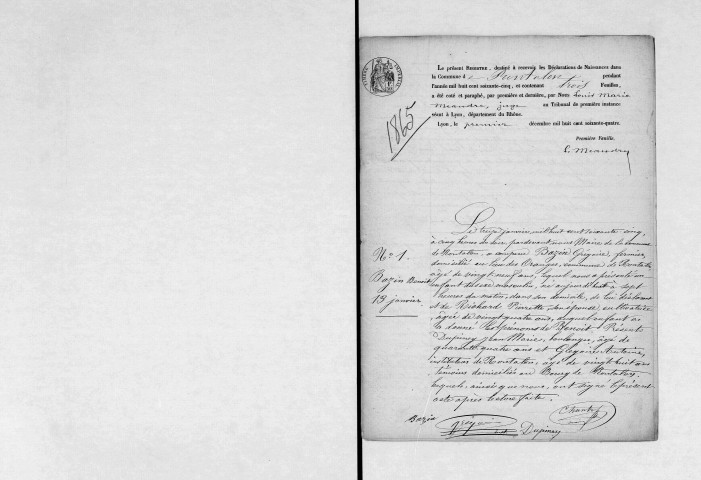 Le présent Registre, destiné à recevoir les Déclarations de Naissances dans
la Commune d pendant
l'année mil huit cent soixante-cinq, et contenant trois Feuilles,
a été coté et paraphé, par première et dernière, par Nous Louis Marie
Méandre, juge au Tribunal de première instance
séant à Lyon, département du Rhône.
Lyon, le premier décembre mil huit cent soixante-quatre.
Première Feuille.
L. Méandre
1865
N° 1.
Bazin Benoit
13 janvier
Le treize janvier mil huit cent soixante cinq,
à cinq heures du soir pardevant nous Maire de la commune
de Rontalon, a comparu Bazin Grégoire, fermier,
domicilié au lieu des Granges, commune de Rontalon,
âgé de vingt neuf ans, lequel nous a présenté un
enfant du sexe masculin, né aujourd'hui à sept
heures du matin, dans son domicile, de lui déclarant
et de Richard Pierrette son épouse, cultivatrice,
âgée de vingt quatre ans, auquel enfant il
a donné les prénoms de Benoit. Présents
Dupinay Jean Marie, boulanger, âgé de
quarante quatre ans et Grégoire Antoine,
instituteur de Rontalon, âgé de vingt huit ans
témoins domiciliés au Bourg de Rontalon,
lesquels, ainsi que nous, ont signé le présent
acte après lecture faite.
Bazin Grégoire Dupinay